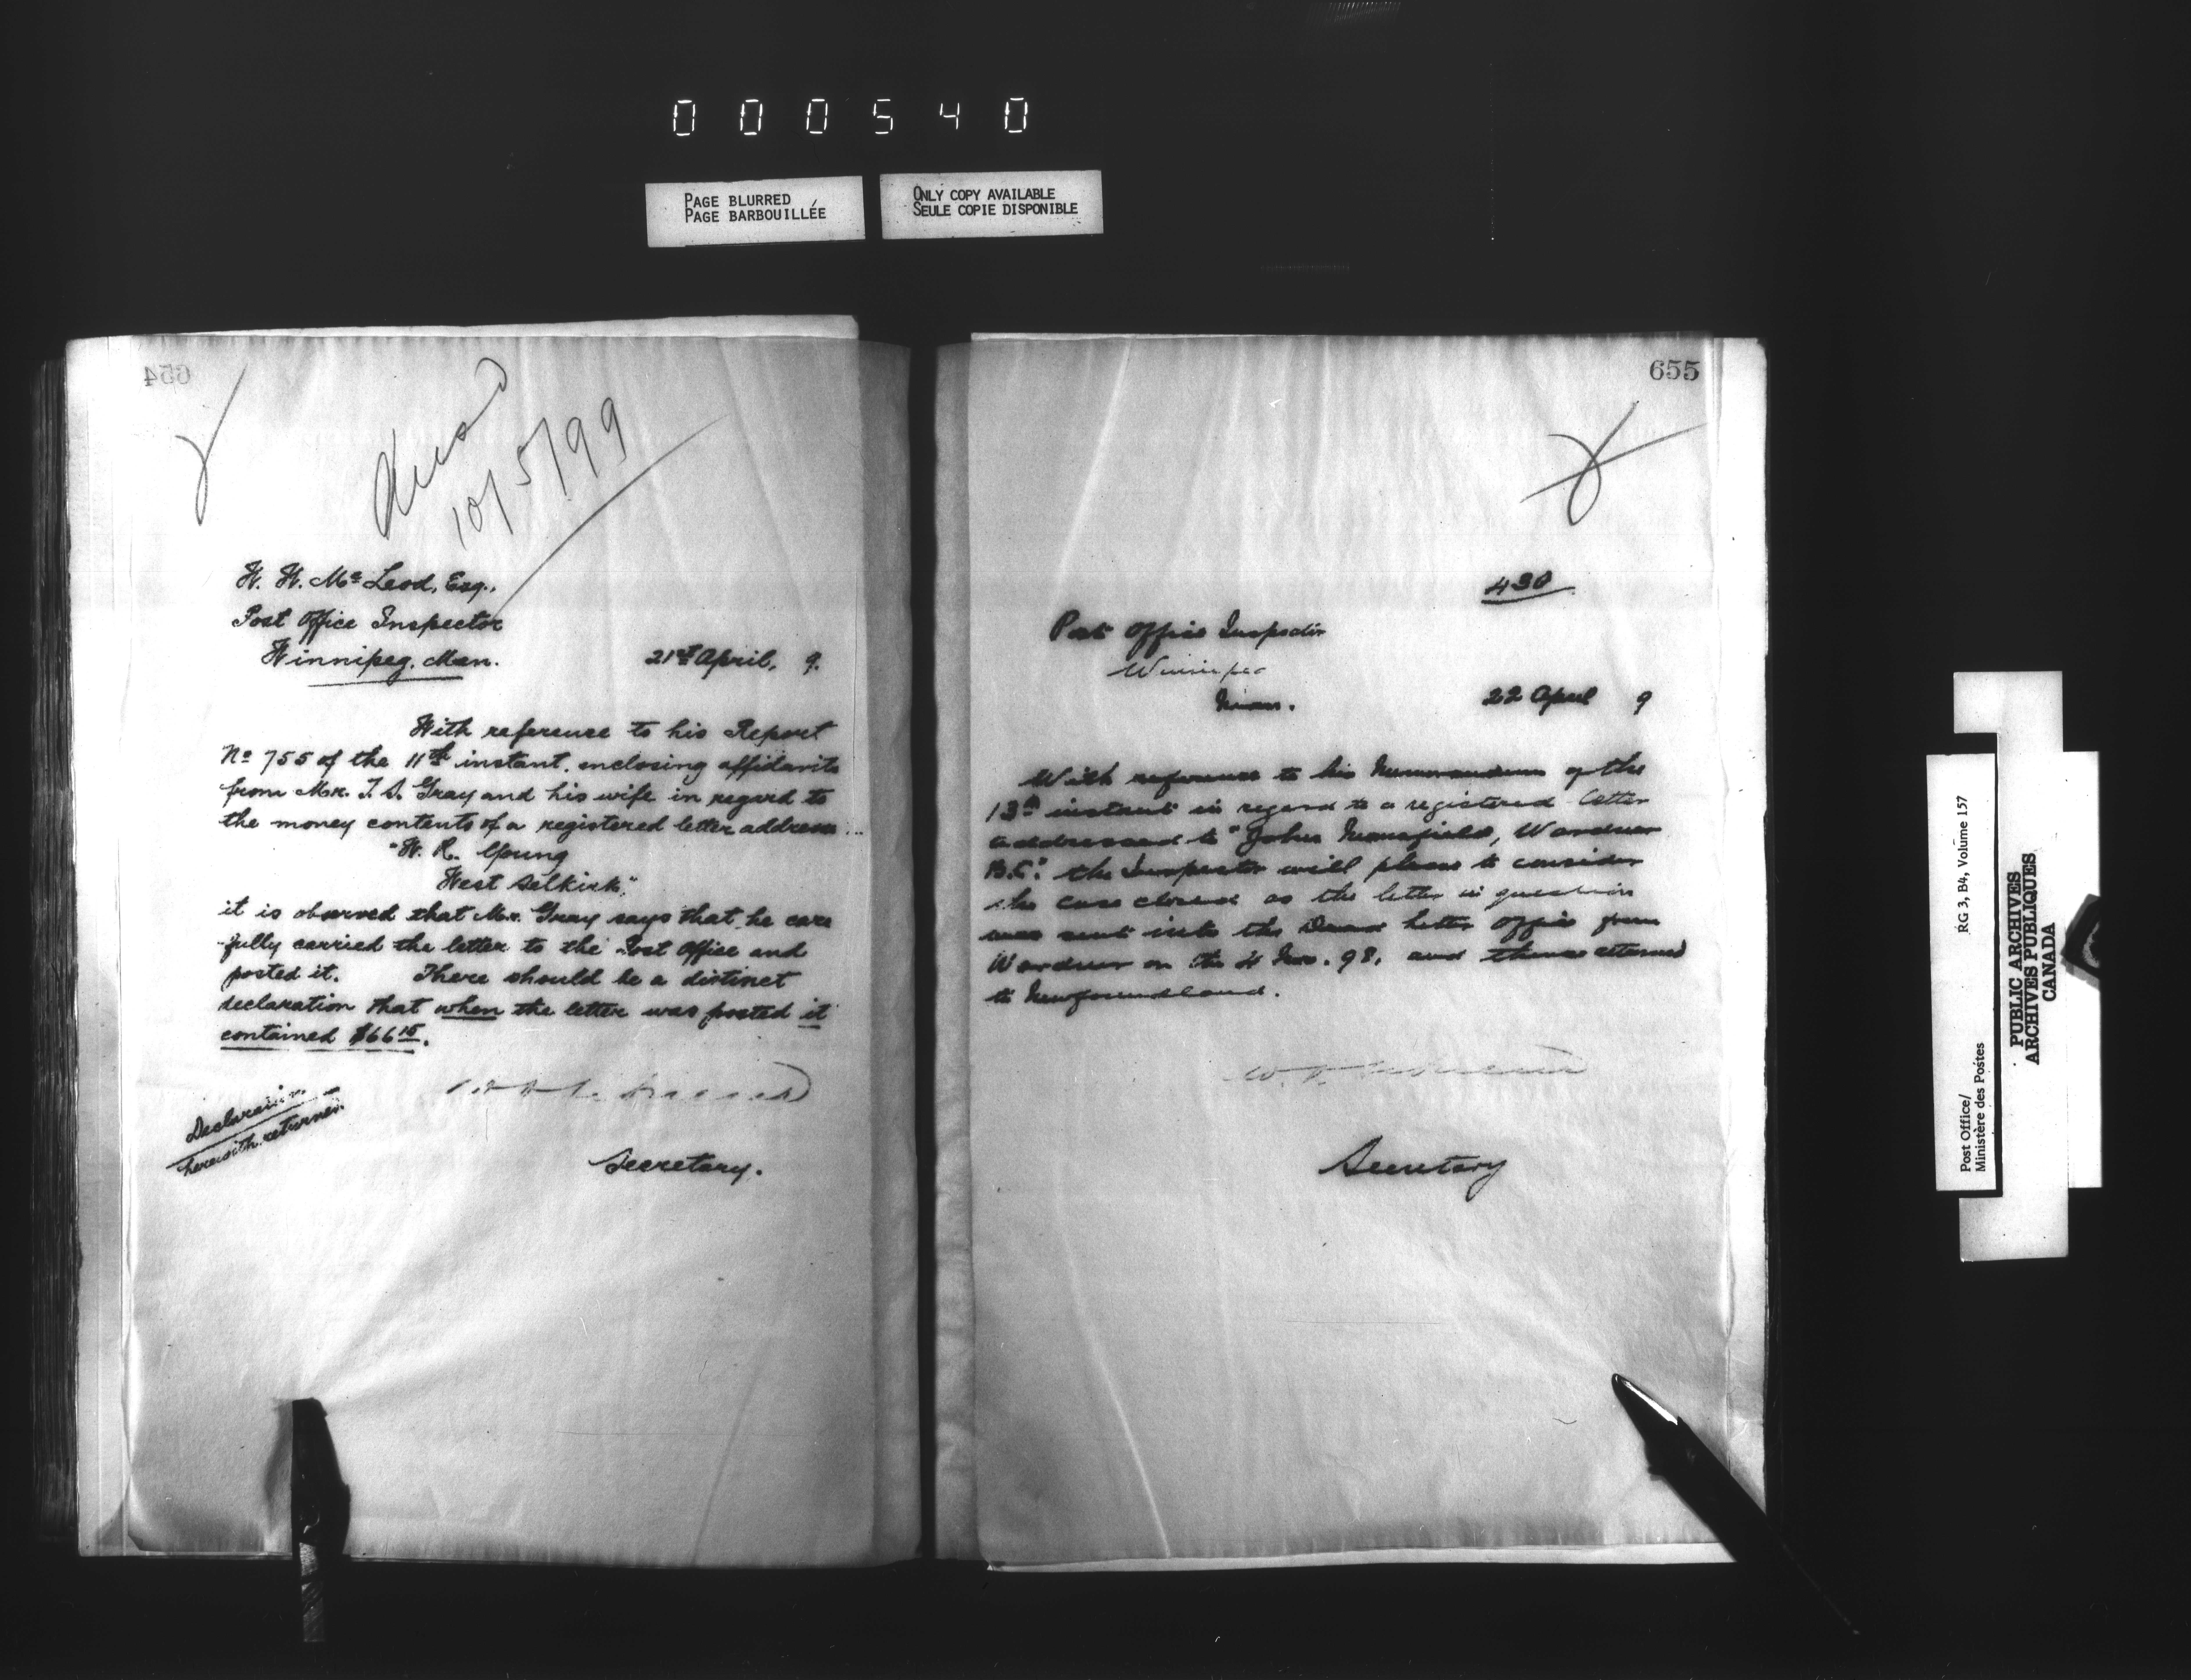 000540
PAGE BLURRED
PAGE BARBOUILLÉE
ONLY COPY AVAILABLE
SEULE COPIE DISPONIBLE
654
10/5/99
W. W. McLeod, Esq.,
Post Office Inspector
Winnipeg. Man.
21st April, 9.
With reference to his Report
No 755 of the 11th instant, inclosing affidavits
from Mr. T. S. Gray and his wife in regard to
the money contents of a registered letter address...
"W. R. Young
West Selkirk"
it is observed that Mr. Gray says that he care
fully carried the letter to the Post Office and
posted it. There should be a distinct
declaration that when the letter was posted it
contained $66 15.
Declaration
herewith returned.
Secretary.
655
430
Post Office Inspector
Winnipeg
Man.
22 April 9
With reference to his Memorandum of the
13th instant in regard to a registered letter
addressed to "John Mansfield, Wardner
B.C." the Inspector will please to consider
the case closed as the letter in question
was sent into the Dead Letter Office from
Wardner on the 4 98, and thence returned
to Newfoundland.
Secretary
Post Office/
Ministère des Postes
RG 3, B4, Volume 157
PUBLIC ARCHIVES
ARCHIVES PUBLIQUES
CANADA